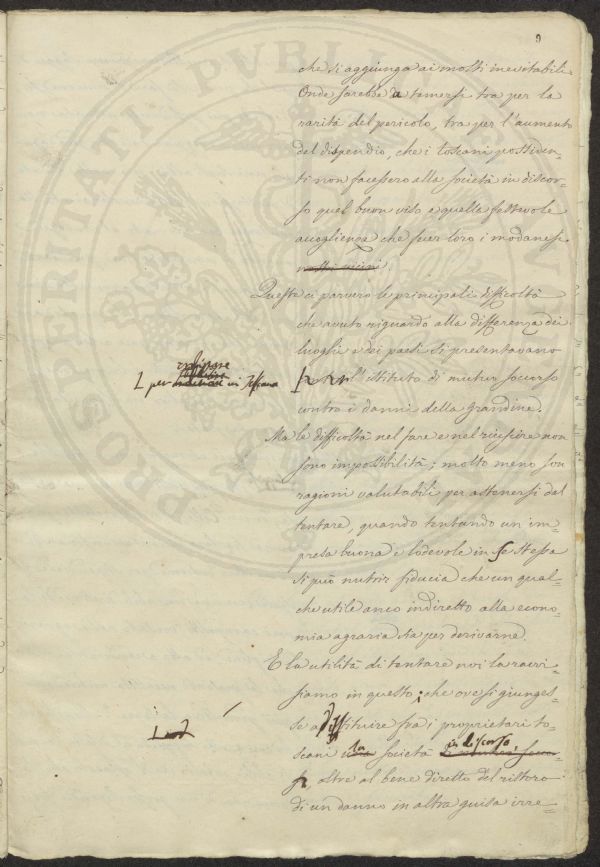 9
che si aggiunga ai molti inevitabili.
Onde sarebbe a temersi tra per la
rarità del pericolo, tra per l'aumento
del dispendio, che i toscani possiden-
ti non facessero alla società in discor-
so quel buon viso e quella festevole
accoglienza che fecer loro i modanesi
nostri vicini.
Queste ci parvero le principali difficoltà
che avuto riguardo alla differenza dei
luoghi e dei paesi si presentavano
per in Toscana
l'istituto di mutuo soccorso
contro i danni della Grandine.
Ma le difficoltà nel fare e nel riuscire non
sono impossibilità; molto meno son
ragioni valutabili per astenersi dal
tentare, quando tentando un im-
presa buona e lodevole in se stessa
si può nutrir fiducia che un qual-
che utile anco indiretto alla econo-
mia agraria sia per derivarne.
E la utilità di tentare noi la ravvi-
siamo in questo; che ove si giunges-
se a istituire fra i proprietari to-
scani la società in discorso,
oltre al bene diretto del ristoro
di un danno in altra guisa irre-
PROSPERITATI PVBL